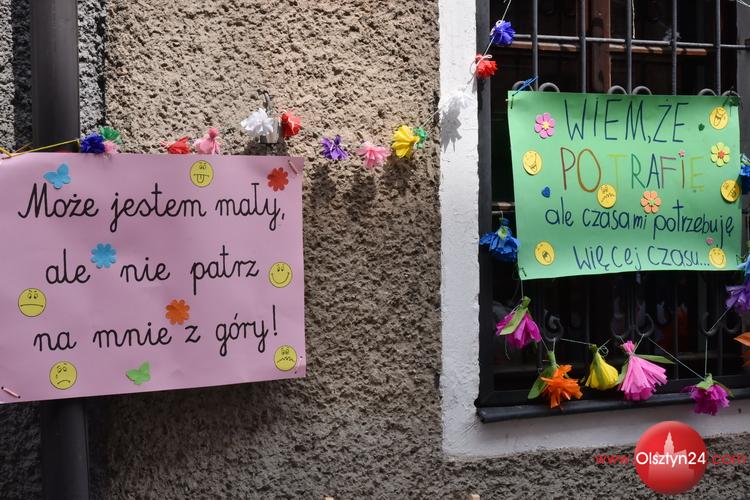 Może jestem mały,
ale nie patrz
na mnie z góry!
WIEM, ŻE
POTRAFIĘ
ale czasami potrzebuję
więcej czasu...
www.Olsztyn24.com